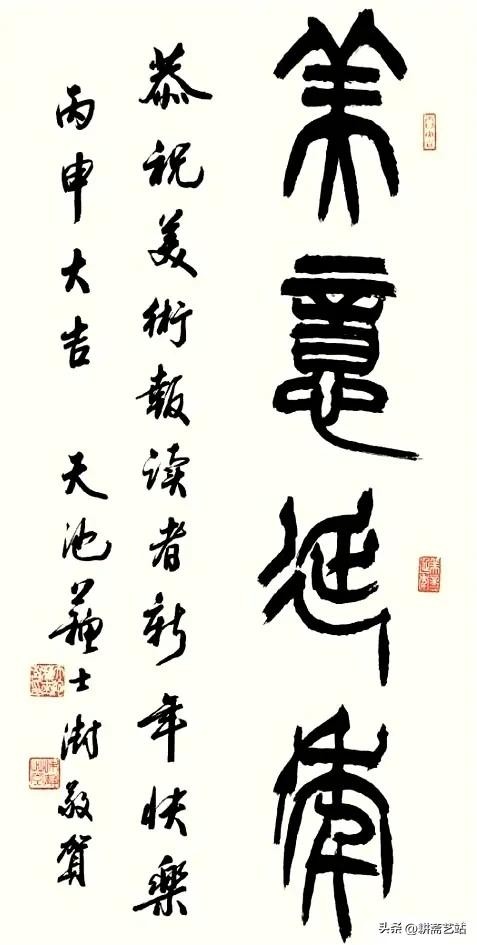 美意延年
恭祝美術報读者新年快樂
丙申大吉 天池蘇士澍敬贺
头条 @耕斋艺站